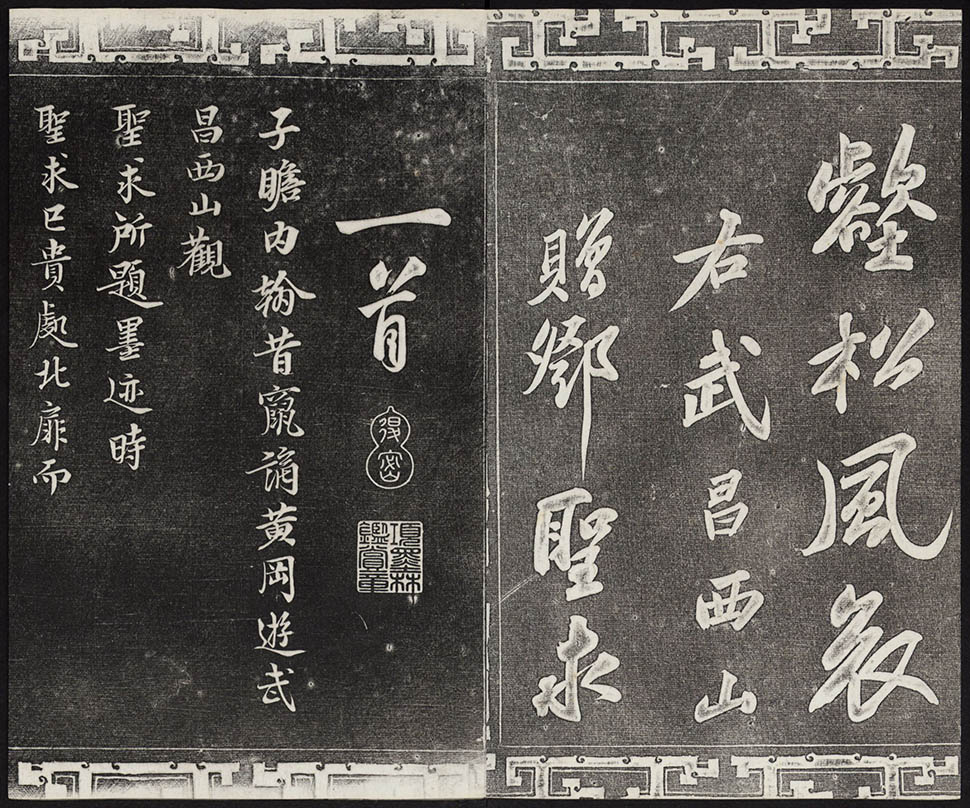 壑松風哀
右武昌西山
贈鄧聖求
一首
得密
項墨林鑑賞章
子瞻内翰昔竄謫黄岡遊武
昌西山觀
聖求所題墨迹時
聖求已貴處北扉而